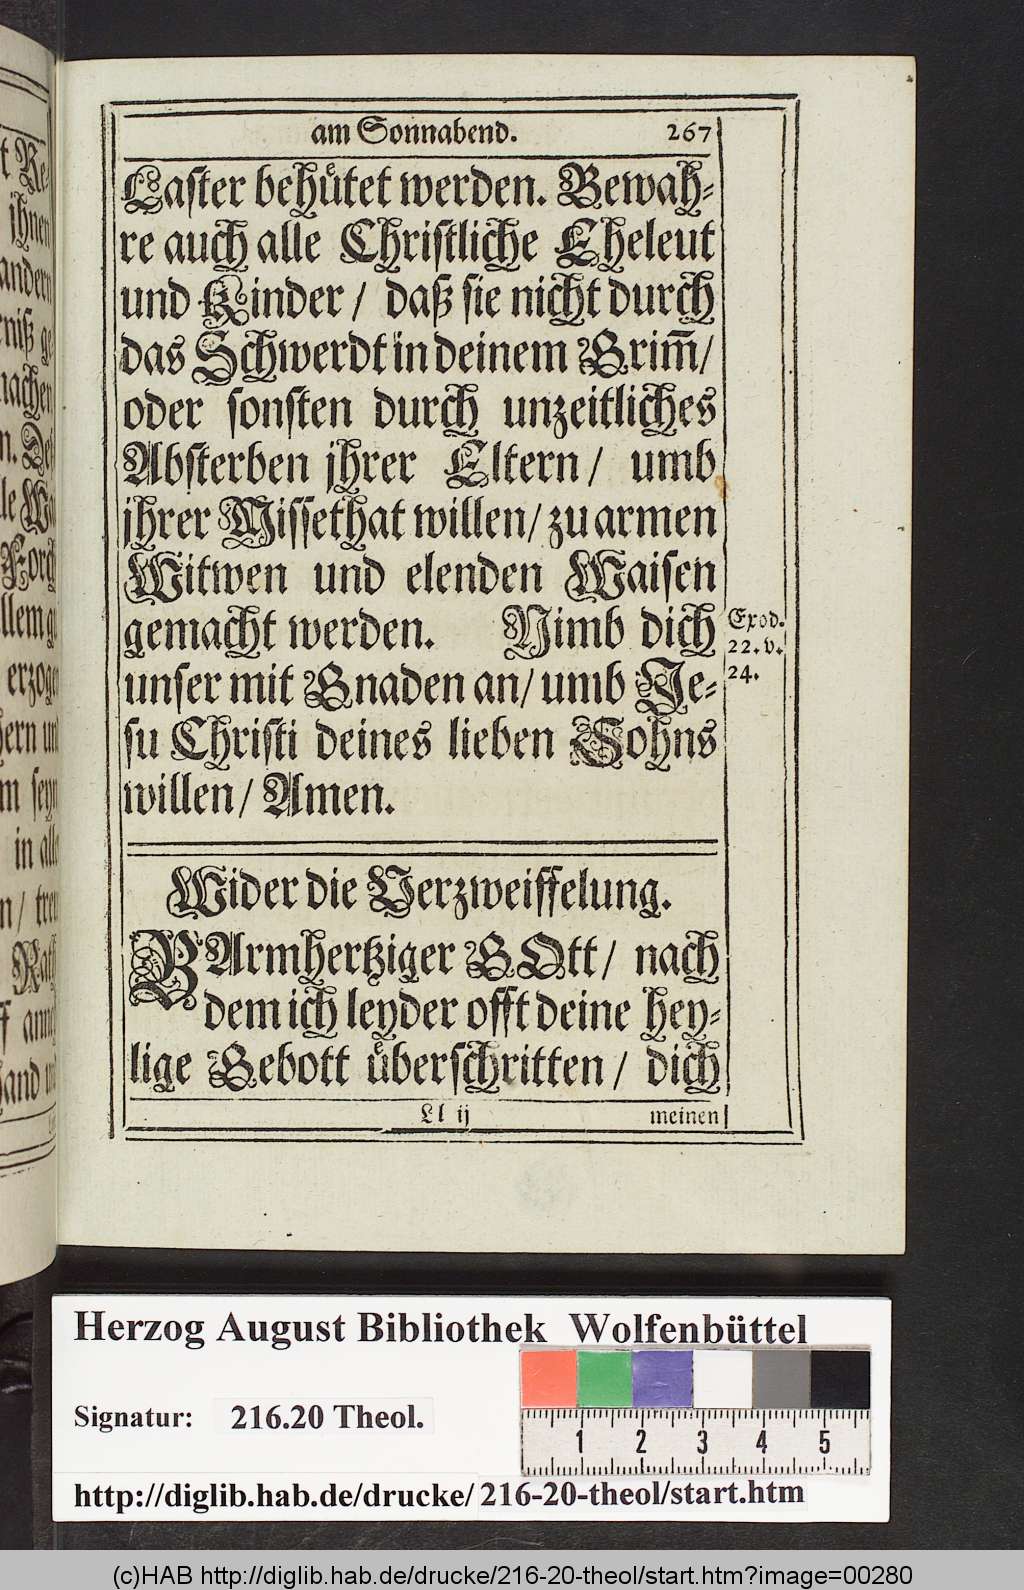 am Sonnabend. 267
Laster behütet werden. Bewah-
re auch alle Christliche Eheleut
und Kinder / daß sie nicht durch
das Schwerdt in deinem Grim̃ /
oder sonsten durch unzeitliches
Absterben jhrer Eltern / umb
jhrer Missethat willen / zu armen
Witwen und elenden Waisen
gemacht werden. Nimb dich
unser mit Gnaden an / umb Je-
su Christi deines lieben Sohns
willen / Amen.
Exod.
22. v.
24.
Wider die Verzweiffelung.
BArmhertziger GOtt / nach
dem ich leyder offt deine hey-
lige Gebott überschritten / dich
Ll ij meinen
jhnen
andern
machen
erzogen
in alle
Herzog August Bibliothek Wolfenbüttel
Signatur: 216.20 Theol.
1 2 3 4 5
http://diglib.hab.de/drucke/216-20-theol/start.htm
(c)HAB http://diglib.hab.de/drucke/216-20-theol/start.htm?image=00280